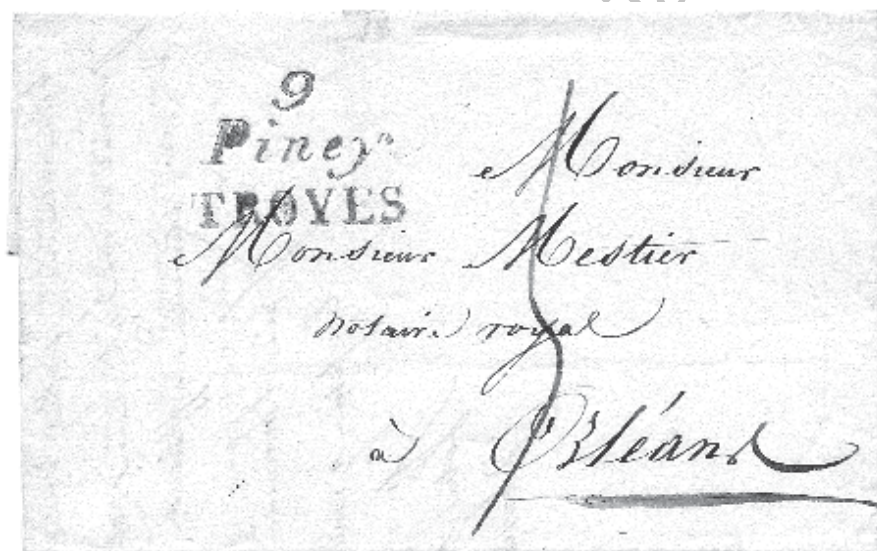 9
Piney
TROYES
Monsieur
Monsieur Mestier
notaire royal
à Orléans